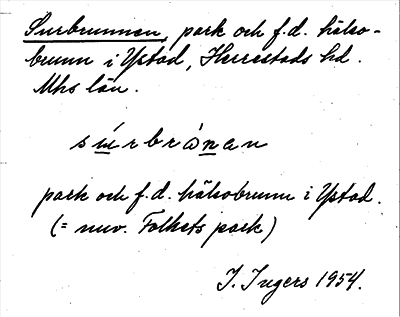 Surbrunnen, park och f.d. hälso-
brunn i Ystad, Herrestads hd.
Mhs län.
súrbrȧnan
park och f.d. hälsobrunn i Ystad.
(= nuv. Folkets park)
I. Ingers 1954.